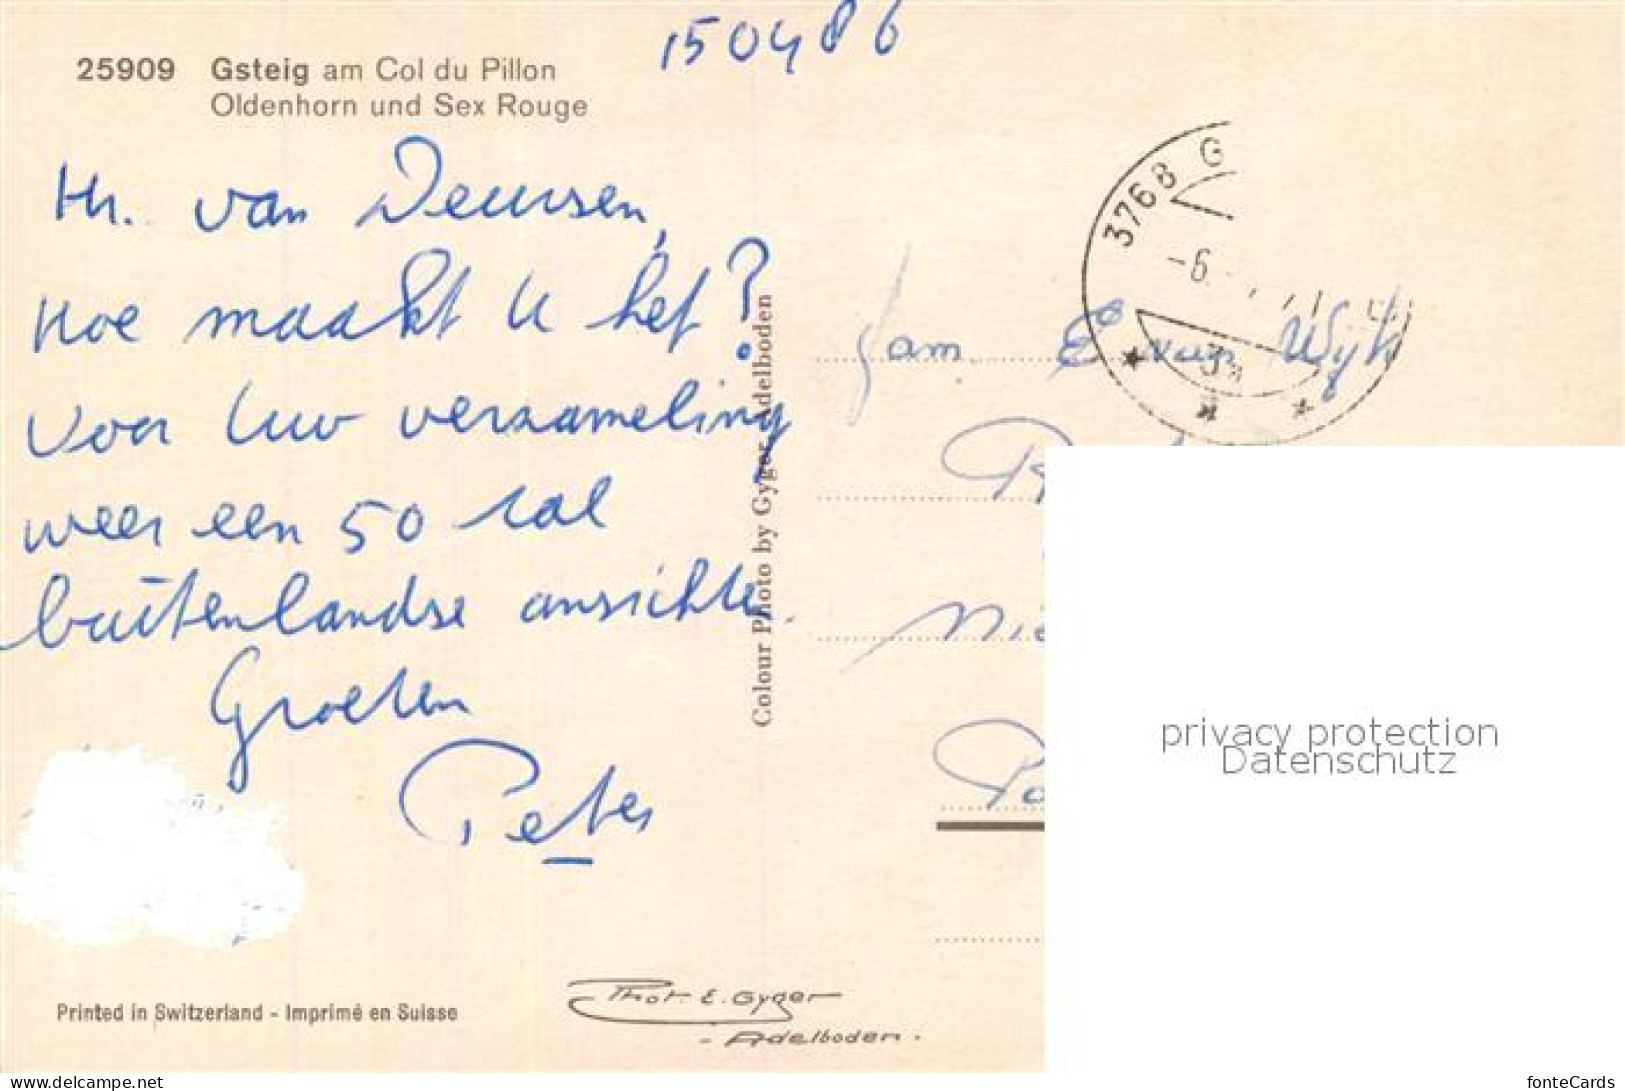 150486
25909 Gsteig am Col du Pillon
Oldenhorn und Sex Rouge
Hr. van Deursen,
Hoe maakt U het?
Voor Uw verzameling
weer een 50 tal
buitenlandse ansichte.
Groeten
Peter
Printed in Switzerland - Imprimé en Suisse
Colour Photo by Gyger, Adelboden
Phot. E. Gyger
- Adelboden -
3768 G
-6.-
Fam. van Wijk
privacy protection
Datenschutz
delcampe.net
fonteCards